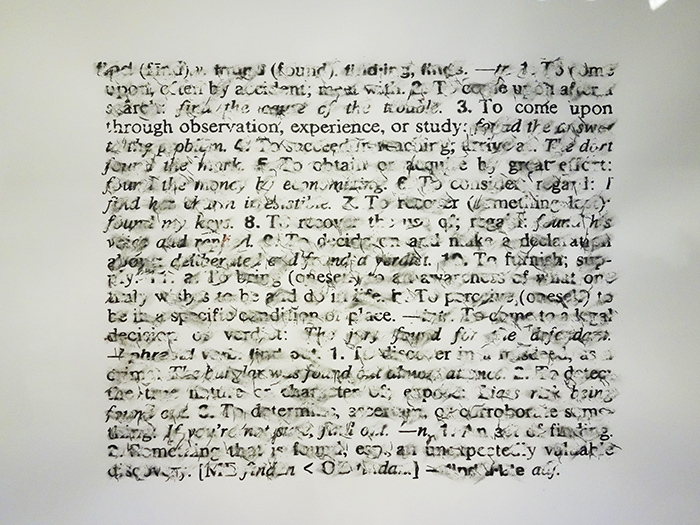 find (find) v. found (found). finding, finds. —tr. 1. To come
upon, often by accident; meet with. 2. To come upon after a
search: find the cause of the trouble. 3. To come upon
through observation, experience, or study: found the answer
to the problem. 4. To succeed in reaching; arrive at: The dart
found the mark. 5. To obtain or acquire by great effort:
found the money by economizing. 6. To consider; regard: I
find her charm irresistible. 7. To recover (something lost):
found my keys. 8. To recover the use of; regain: found his
voice and replied. 9. To decide on and make a declaration
about: deliberated and found a verdict. 10. To furnish; sup-
ply. 11. a. To bring (oneself) to an awareness of what one
truly wishes to be and do in life. b. To perceive (oneself) to
be in a specific condition or place. —intr. To come to a legal
decision or verdict: The jury found for the defendant.
—phrasal verb. find out. 1. To discover in a misdeed, as a
crime: The burglar was found out almost at once. 2. To detect
the true nature or character of; expose: Liars risk being
found out. 3. To determine, ascertain, or corroborate some-
thing: If you're not sure, find out. —n. 1. An act of finding.
2. Something that is found, esp. an unexpectedly valuable
discovery. [ME finden < OE findan.] —findable adj.